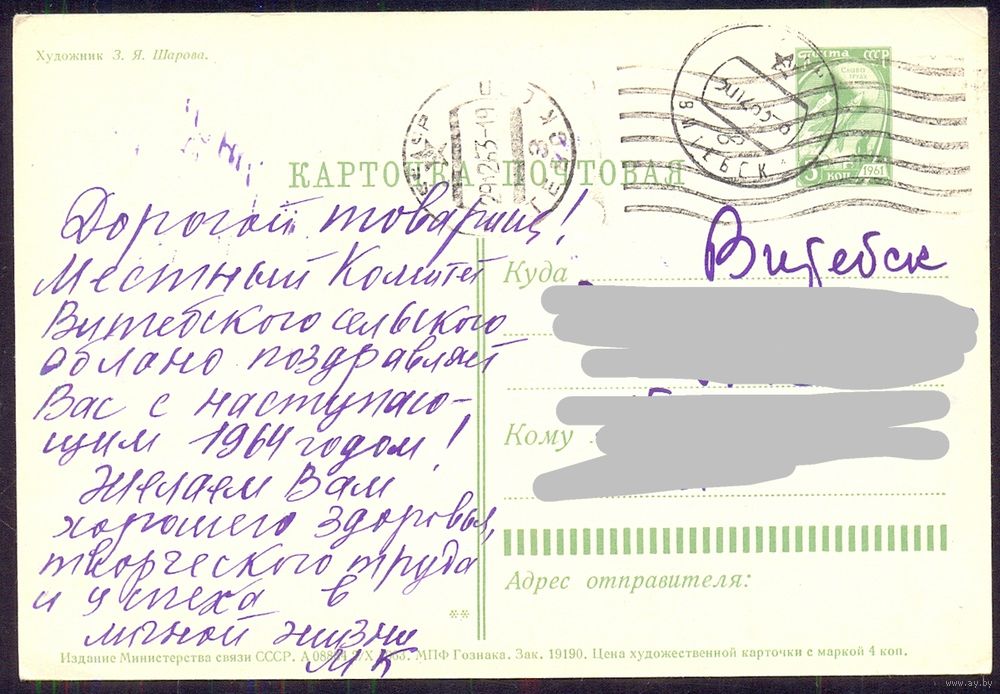 Художник З. Я. Шарова.
ПОЧТА СССР
3 КОП
1961
ВИТЕБСК
КАРТОЧКА ПОЧТОВАЯ
Дорогой товарищ!
Местный Комитет
Витебского сельского
облано поздравляет
Вас с наступаю-
щим 1964 годом!
Желаем Вам
хорошего здоровья,
творческого труда
и успеха в
личной жизни
МК
Куда Витебск
Кому
Адрес отправителя:
Издание Министерства связи СССР. МПФ Гознака. Зак. 19190. Цена художественной карточки с маркой 4 коп.
www.ay.by